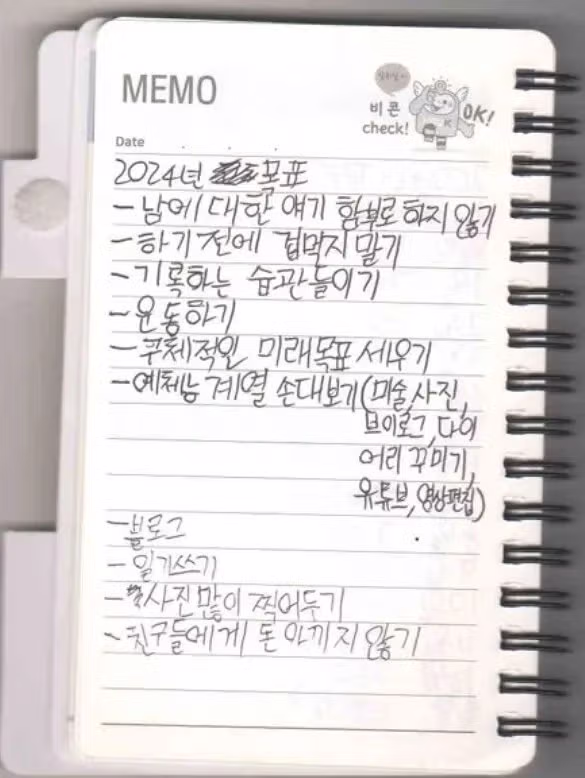 MEMO
비콘
check!
OK!
K
Date
2024년 목표
- 남에 대한 얘기 함부로 하지 않기
- 하기 전에 겁먹지 말기
- 기록하는 습관들이기
- 운동하기
- 구체적인 미래목표 세우기
- 예체능 계열 손대보기(미술,사진,
브이로그,다이
어리 꾸미기,
유튜브,영상편집)
- 블로그
- 일기쓰기
- 사진 많이 찍어두기
- 친구들에게 돈 아끼지 않기